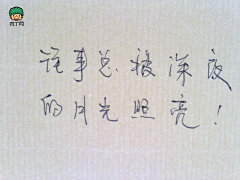 往事总被深夜
的月光照亮！